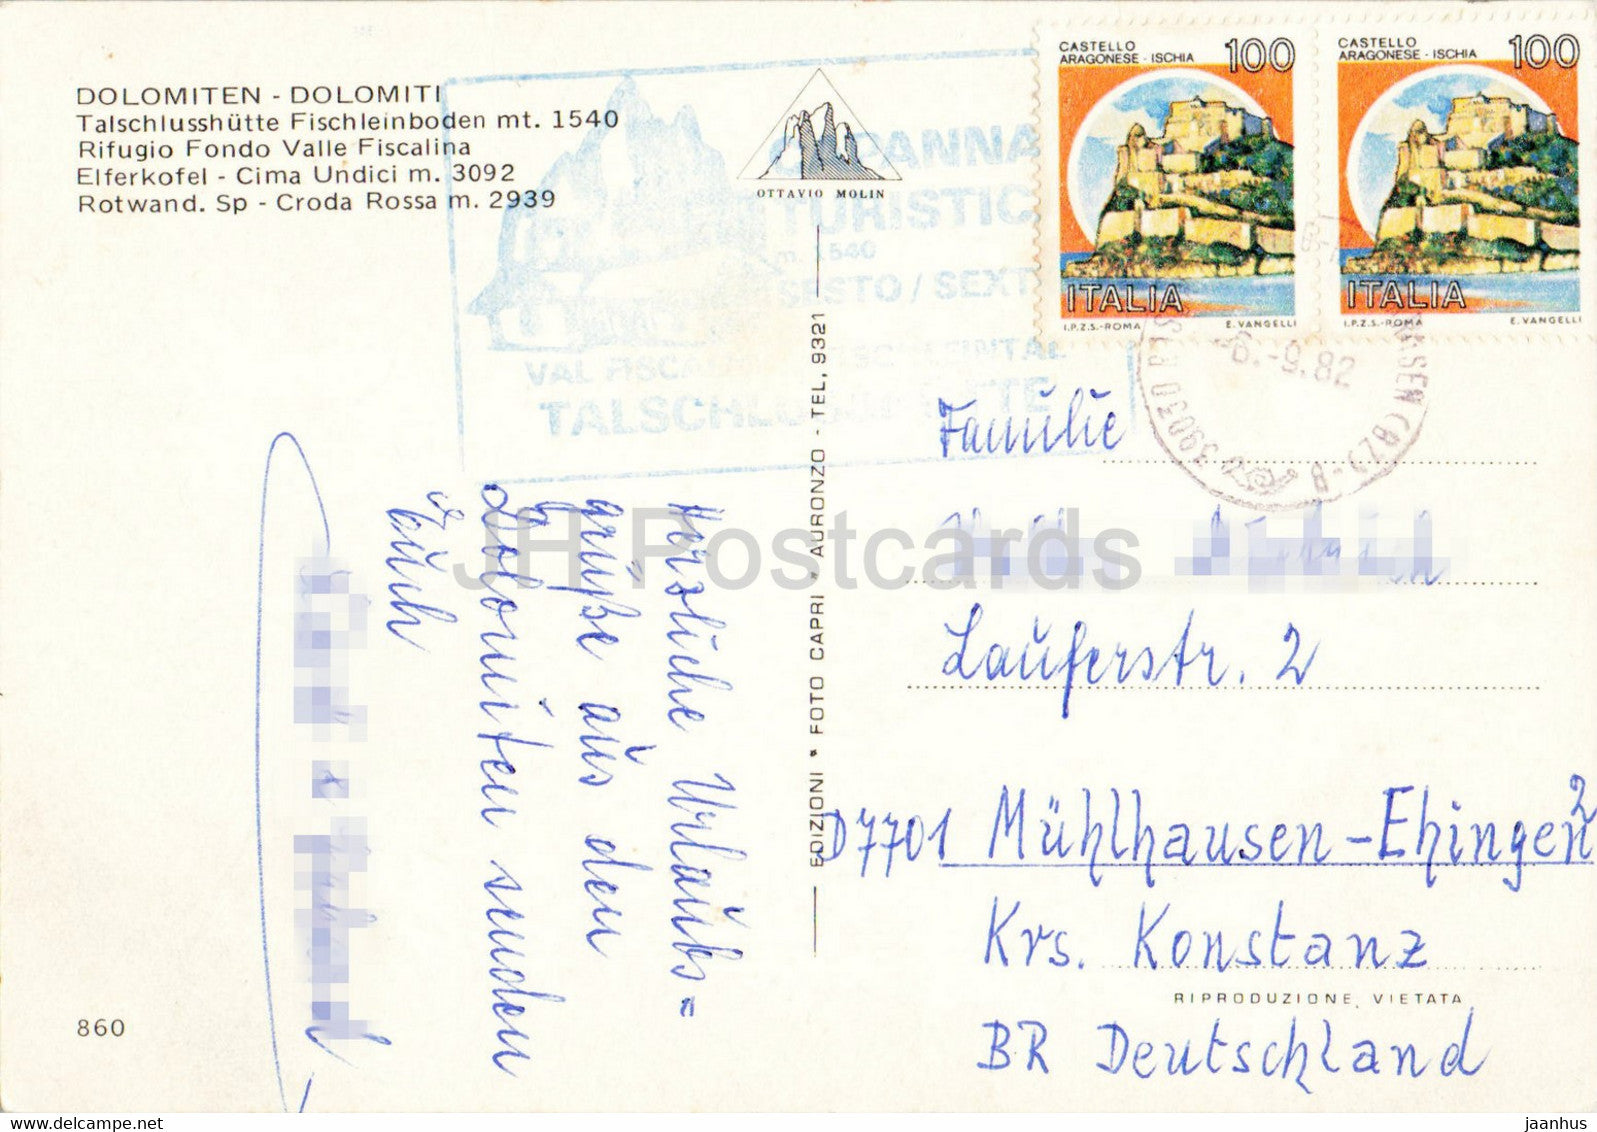 DOLOMITEN - DOLOMITI
Talschlusshütte Fischleinboden mt. 1540
Rifugio Fondo Valle Fiscalina
Elferkofel - Cima Undici m. 3092
Rotwand. Sp - Croda Rossa m. 2939
OTTAVIO MOLIN
CASTELLO
ARAGONESE - ISCHIA
100
ITALIA
I.P.Z.S.-ROMA E. VANGELLI
CASTELLO
ARAGONESE - ISCHIA
100
ITALIA
I.P.Z.S.-ROMA E. VANGELLI
TURISTIC
m. 1540
SESTO / SEXT
VAL
39030
-9.82
Herzliche Urlaubs=
grüße aus den
Dolomiten senden
Euch
EDIZIONI * FOTO CAPRI * AURONZO - TEL, 9321
Familie
Lauferstr. 2
D7701 Mühlhausen-Ehingen 2
Krs. Konstanz
BR Deutschland
RIPRODUZIONE VIETATA
860
JH Postcards
jaanhus